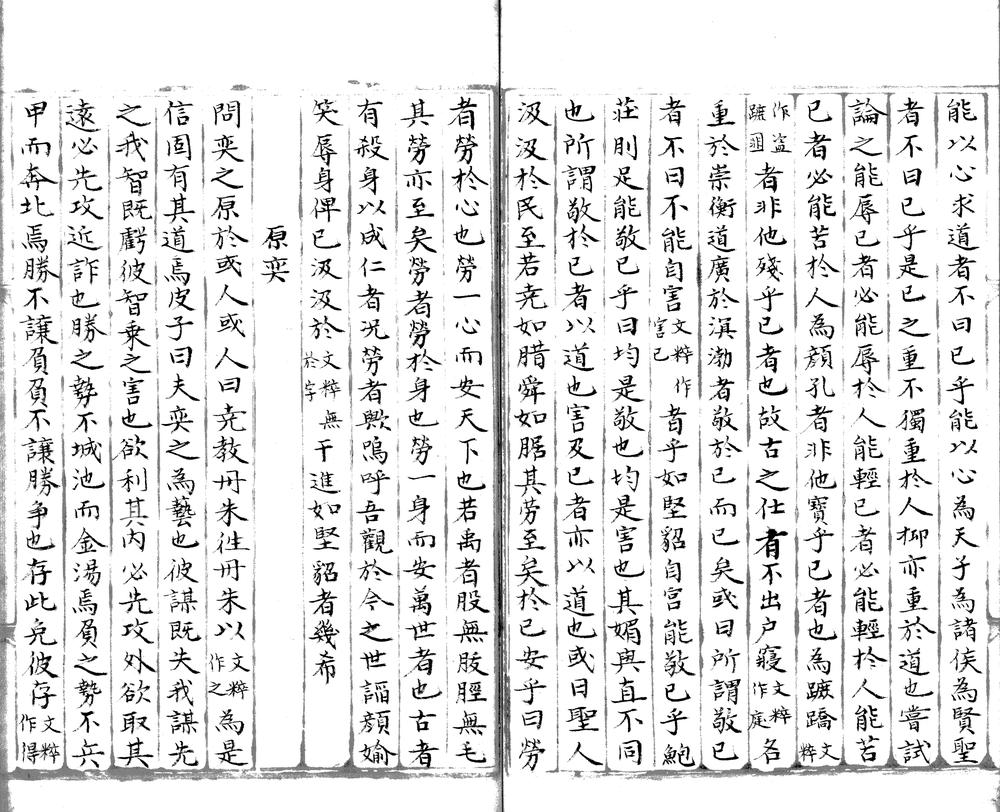 能以心求道者不曰已乎能以心為天子為諸侯為賢聖
者不曰已乎是已之重不獨重於人抑亦重於道也嘗試
論之能辱已者必能辱於人能輕已者必能輕於人能苦
已者必能苦於人為顏孔者非他寶乎已者也為蹠蹻文粹
作盜蹠跙者非他殘乎已者也故古之仕者不出户寢文粹作庭名
重於崇衡道廣於溟渤者敬於已而已矣或曰所謂敬已
者不曰不能自害文粹作害已者乎如堅貂自宮能敬已乎鮑
莊則足能敬已乎曰均是敬也均是害也其媚與直不同
也所謂敬於已者以道也害及已者亦以道也或曰聖人
汲汲於民至若堯如腊舜如腒其劳至矣於已安乎曰勞
者勞於心也勞一心而安天下也若禹者股無胈脛無毛
其勞亦至矣勞者勞於身也勞一身而安萬世者也古者
有殺身以成仁者况勞者歟嗚呼吾觀於今之世諂顏媮
笑辱身俾已汲汲於文粹無於字干進如堅貂者幾希
原奕
問奕之原於或人或人曰堯教丹朱徃丹朱以文粹作之為是
信固有其道焉皮子曰夫奕之為藝也彼謀既失我謀先
之我智既虧彼智乘之害也欲利其内必先攻外欲取其
遠必先攻近詐也勝之勢不城池而金湯焉負之勢不兵
甲而奔北焉勝不讓負負不讓勝争也存此免彼存文粹作得